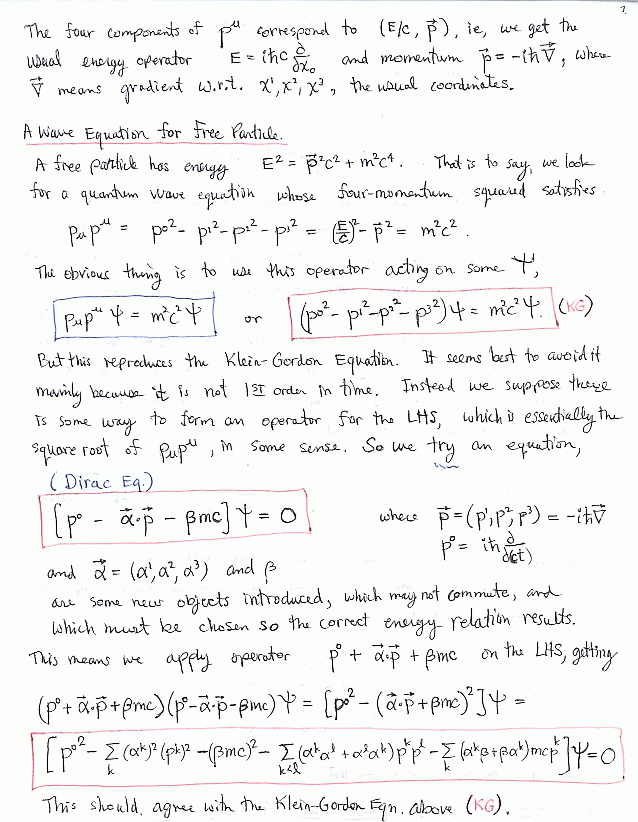 7.
The four components of p^μ correspond to (E/c, p⃗), ie, we get the
usual energy operator E = iħc ∂/∂x₀ and momentum p⃗ = -iħ∇⃗, where
∇⃗ means gradient w.r.t. x¹, x², x³, the usual coordinates.
A Wave Equation for Free Particle.
A free particle has energy E² = p⃗²c² + m²c⁴. That is to say, we look
for a quantum wave equation whose four-momentum squared satisfies
p_μp^μ = p⁰² - p¹² - p²² - p³² = (E/c)² - p⃗² = m²c².
The obvious thing is to use this operator acting on some Ψ,
p_μp^μ Ψ = m²c²Ψ or (p⁰² - p¹² - p²² - p³²)Ψ = m²c²Ψ. (KG)
But this reproduces the Klein-Gordon Equation. It seems best to avoid it
mainly because it is not 1ST order in time. Instead we suppose there
is some way to form an operator for the LHS, which is essentially the
square root of p_μp^μ, in some sense. So we try an equation,
(Dirac Eq.)
[p⁰ - α⃗·p⃗ - βmc]Ψ = 0 where p⃗ = (p¹, p², p³) = -iħ∇⃗
p⁰ = iħ ∂/∂(ct)
and α⃗ = (α¹, α², α³) and β
are some new objects introduced, which may not commute, and
which must be chosen so the correct energy relation results.
This means we apply operator p⁰ + α⃗·p⃗ + βmc on the LHS, getting
(p⁰ + α⃗·p⃗ + βmc)(p⁰ - α⃗·p⃗ - βmc)Ψ = [p⁰² - (α⃗·p⃗ + βmc)²]Ψ =
[p⁰² - Σ_k (α^k)²(p^k)² - (βmc)² - Σ_{k<l} (α^kα^l + α^lα^k)p^kp^l - Σ_k (α^kβ + βα^k)mcp^k]Ψ = 0
This should agree with the Klein-Gordon Eqn. above (KG).